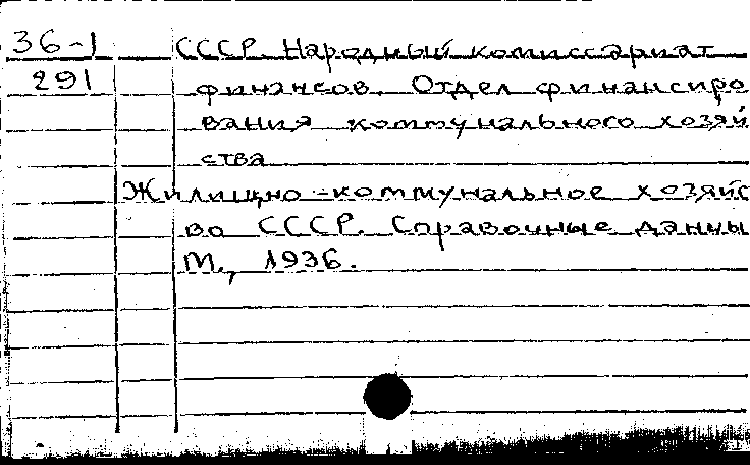 36-1 СССР. Народный комиссариат
291 финансов. Отдел финансиро
вания коммунального хозяй
ства
Жилищно-коммунальное хозяйс
во СССР. Справочные данны
М., 1936.